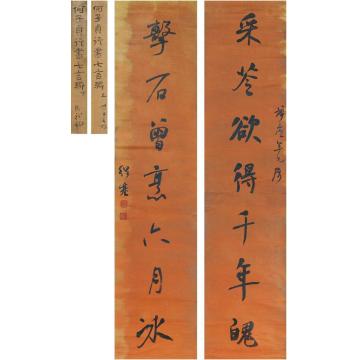 采苓欲得千年魄
擊石曾烹六月冰
紹基
何子貞行書七言聯
何子貞行書七言聯